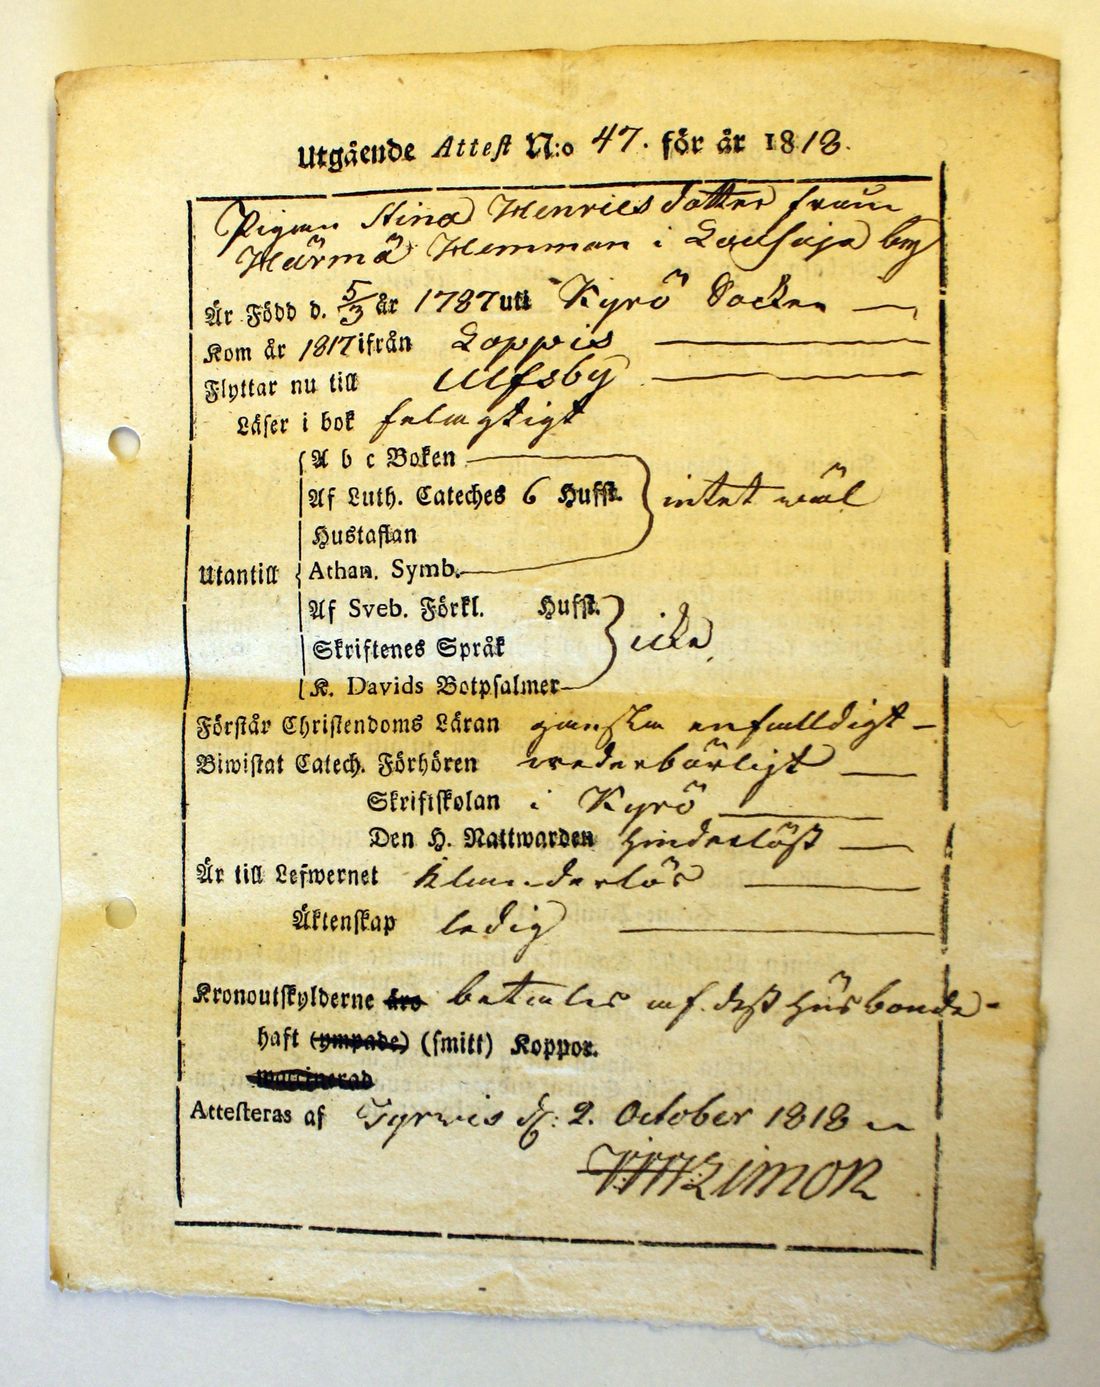 Utgående Attest N:o 47. för år 1818.
Pigan Stina Henricsdotter från
Härmä Hemman i by
Är Född d. 5/3 år 1787 uti Kyrö Socken
Kom år 1817 ifrån Loppis
Flyttar nu till Ulfsby
Läser i bok felagtigt
A b c Boken
Af Luth. Cateches 6 Hufst. intet wäl
Hustaflan
Utantill Athan. Symb.
Af Sveb. Förkl. Hufst.
Skriftenes Språk icke
K. Davids Botpsalmer
Förstår Christendoms Läran ganska enfalldigt
Biwistat Catech. Förhören wederbörligt
Skriftskolan i Kyrö
Den H. Nattwarden hinderlöst
Är till Lefwernet klanderlös
Äktenskap ledig
Kronoutskylderne äro betales af dess Husbonde
haft (ympade) (smitt) Koppor.
waccinerad
Attesteras af Tyrwis d. 2. October 1818